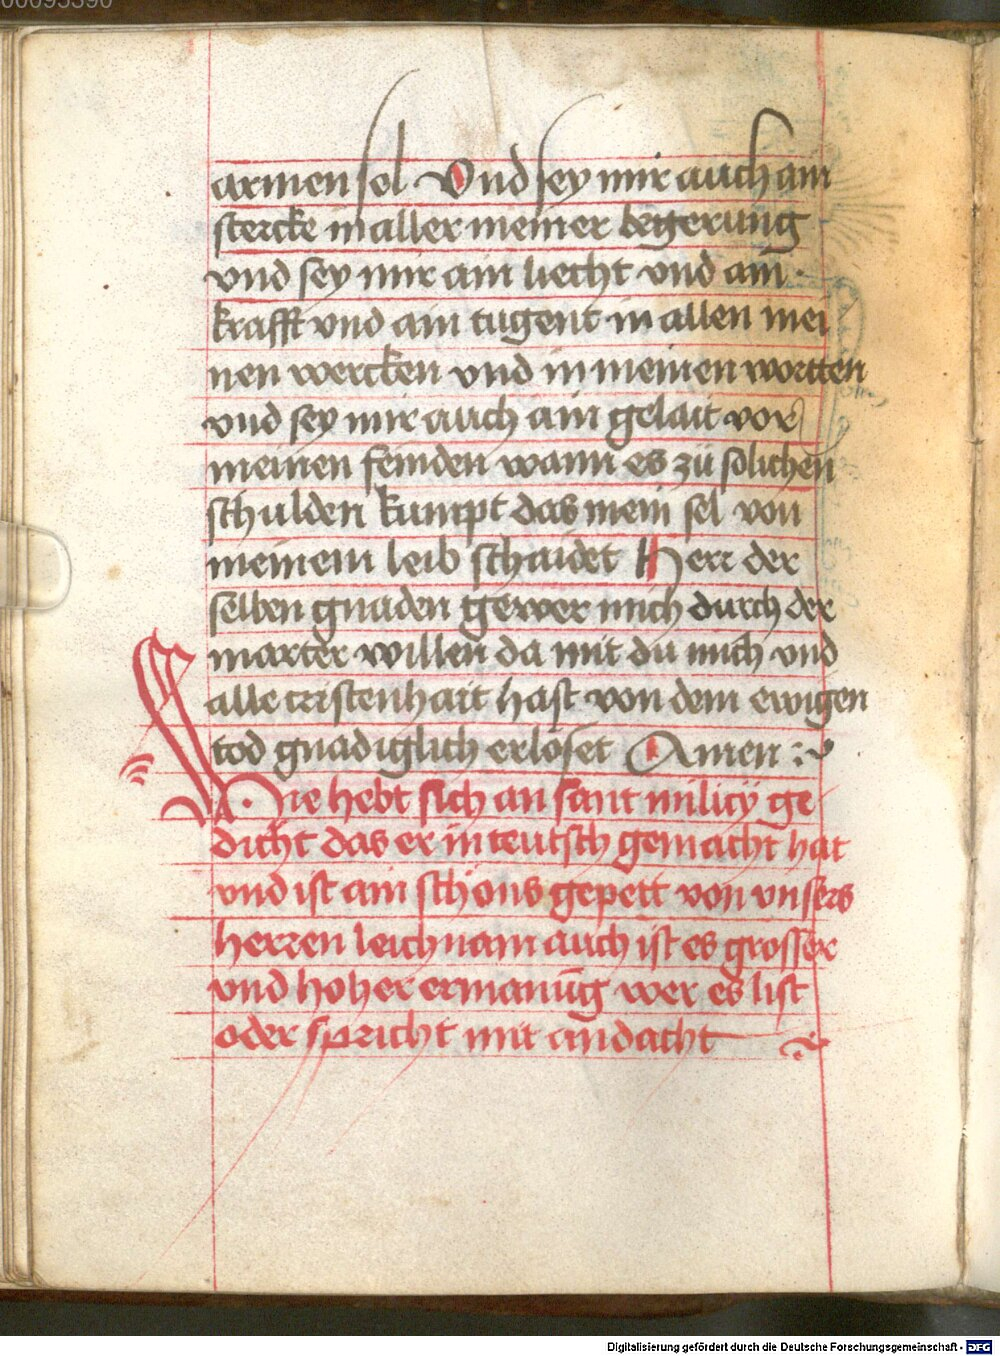 00095390
armen sel Vnd sey mir auch am
stercke in aller meiner begerung
vnd sey mir ain liecht vnd ain
krafft vnd ain tugent in allen mei
nen wercken vnd in meinen wortten
vnd sey mir auch ain gelait vor
meinen feinden wann es zü solichen
schulden kumpt das mein sel von
meinem leib schaidet Herr der
selben gnaden gewer mich durch der
marter willen da mit du mich vnd
alle cristenhait hast von dem ewigen
tod gnadiglich erloset Amen :~
Hie hebt sich an sant milicÿ ge
dicht das er in teutsch gemacht hat
vnd ist ain schons gepett von vnsers
herren leichnam auch ist es grosser
vnd hoher ermanūg wer es list
oder spricht mit andacht ~
Digitalisierung gefördert durch die Deutsche Forschungsgemeinschaft - DFG